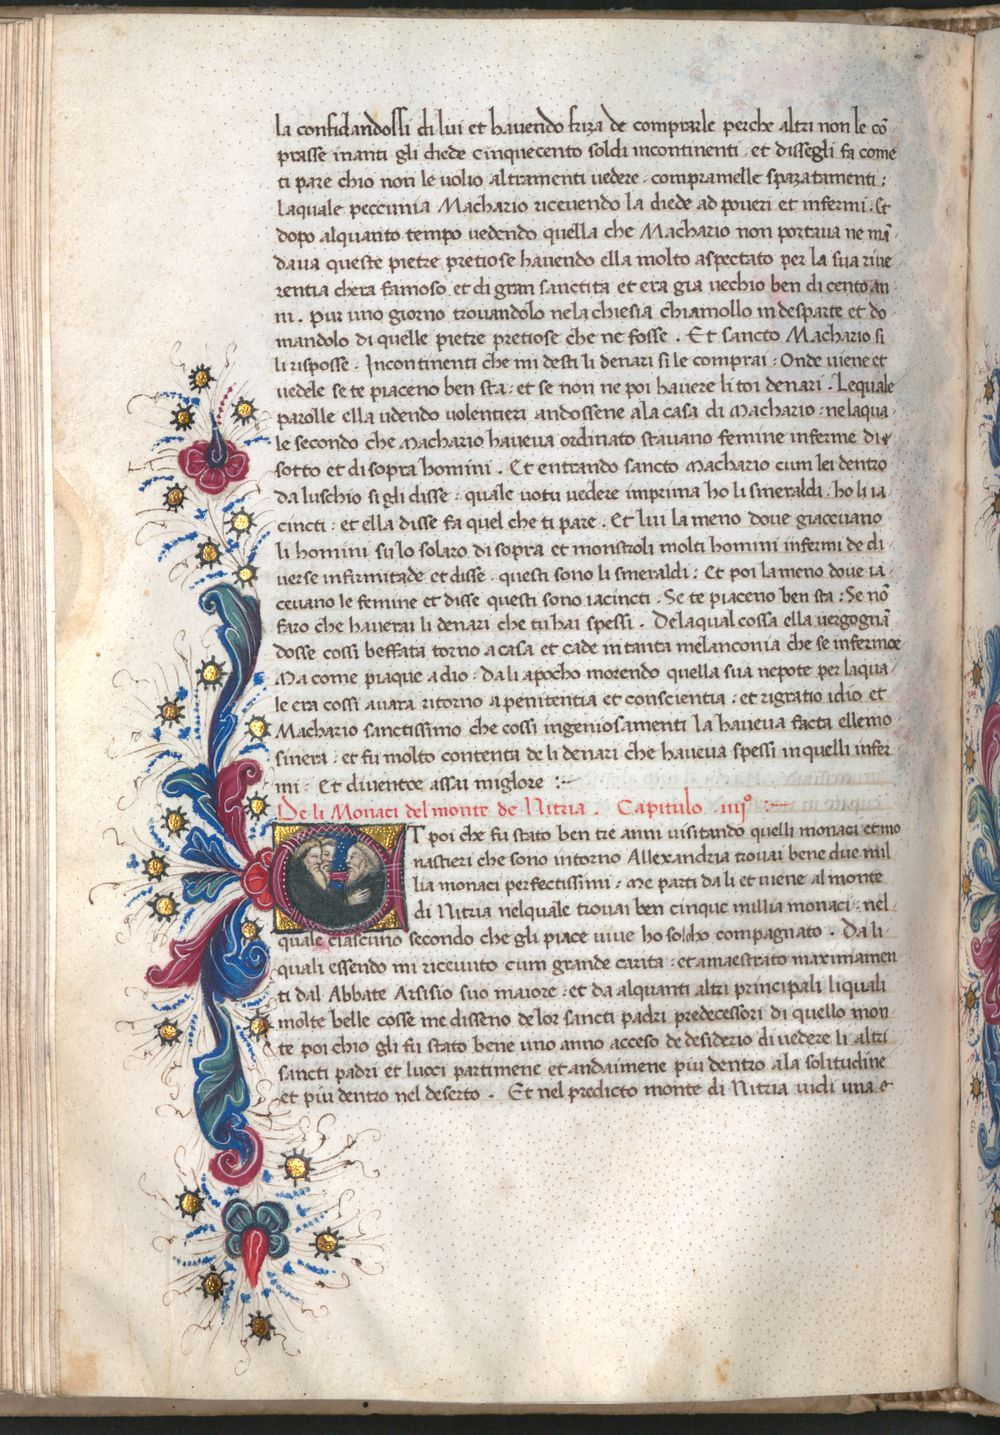 la confidandossi di lui et havendo friza de comprarle perche altri non le cō
prasse inanti gli diede cinquecento soldi incontinenti · et dissegli fa come
ti pare chio non le volio altramenti vedere · compramelle spazatamenti :
laquale peccunia Machario ricevendo la diede ad poveri et infermi : Et
dopo alquanto tempo vedendo quella che Machario non portava ne mā
dava queste pietre pretiose havendo ella molto aspectato per la sua rive
rentia chera famoso et di gran sanctita et era gia vechio ben di cento an
ni . Pur uno giorno trovandolo nela chiesia chiamollo indesparte et do
mandolo di quelle pietre pretiose che ne fosse . Et sancto Machario si
li risposse . Incontinenti che mi desti li denari si le comprai : Onde viene et
vedele se te piaceno ben sta : et se non ne poi havere li toi denari . Lequale
parolle ella udendo volentieri andossene ala casa di Machario : nelaqua
le secondo che Machario haveva ordinato stavano femine inferme di
sotto et di sopra homini . Et entrando sancto Machario cum lei dentro
da luschio si gli disse : quale votu vedere imprima ho li smeraldi · ho li ia
cincti : et ella disse fa quel che ti pare . Et lui la meno dove giacevano
li homini su lo solaro di sopra et monstroli molti homini infermi de di
verse infirmitade et disse · questi sono li smeraldi : Et poi la meno dove ia
cevano le femine et disse questi sono iacincti : Se te piaceno ben sta : Se nō
faro che haverai li denari che tu hai spessi . Delaqual cossa ella vergognā
dosse cossi beffata torno a casa et cade in tanta melanconia che se infermoe
Ma come piaque a dio : Da li apocho morendo quella sua nepote per laqua
le era cossi avara ritorno a penitentia et conscientia : et rigratio idio et
Machario sanctissimo che cossi ingeniosamenti la haveva facta ellemo
sinera : et fu molto contenta de li denari che haveva spessi in quelli infer
mi : Et diventoe assai migliore :~
De li Monaci del monte de Nitria . Capitulo .iiij° :~
ET poi che fu stato ben tre anni visitando quelli monaci et mo
nastieri che sono intorno Allexandria trovai bene due mil
lia monaci perfectissimi : Me parti da li et viene al monte
di Nitria nelquale trovai ben cinque millia monaci : nel
quale ciascuno secondo che gli piace vive ho solo ho compagnato . Da li
quali essendo mi ricevuto cum grande carita : et amaestrato maximamen
ti dal Abbate Arsisio suo maiore : et da alquanti altri principali liquali
molte belle cosse me disseno delor sancti padri predecessori di quello mon
te poi chio gli fu stato bene uno anno acceso de desiderio di vedere li altri
sancti padri et lucci partimene et andaimene piu dentro ala solitudine
et piu dentro nel deserto . Et nel predicto monte di Nitria vidi una e